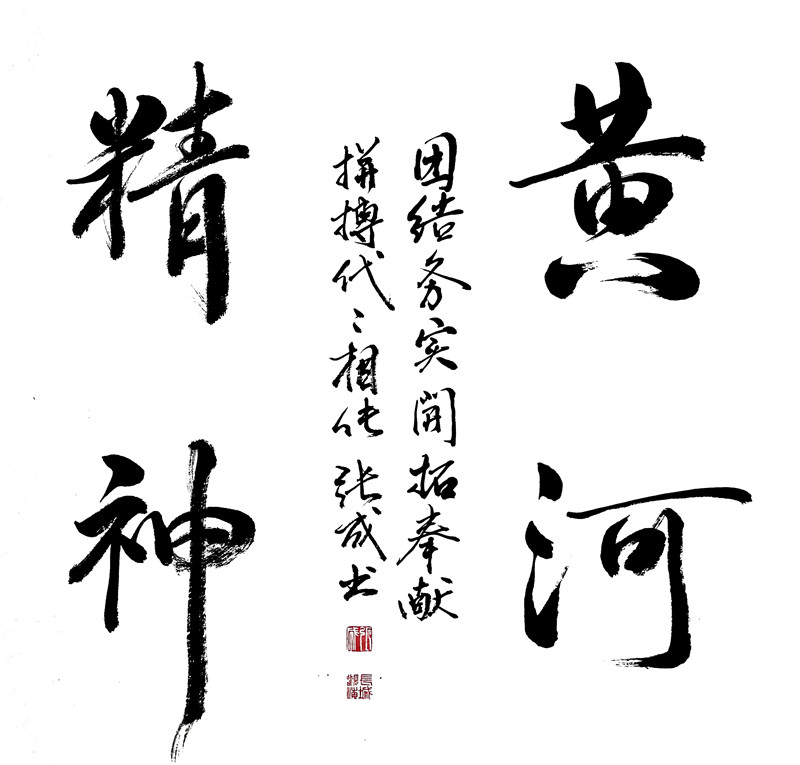 黄河
团结务实開拓奉献
拼搏代〻相传 张成书
精神